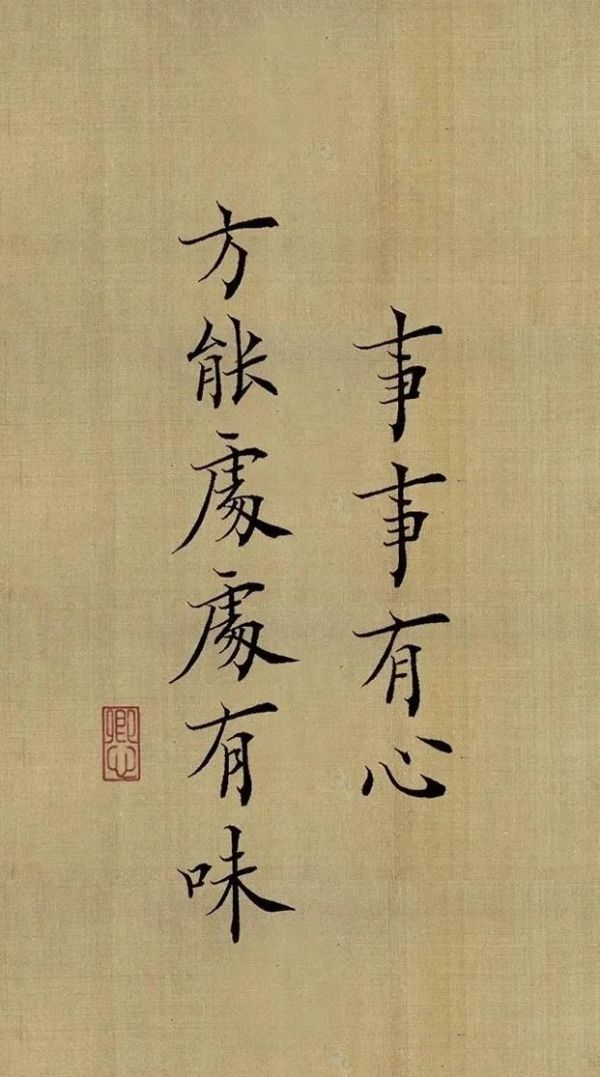 事事有心
方能處處有味